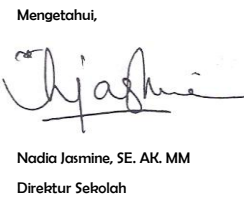 Mengetahui,
Nadia Jasmine, SE. AK. MM
Direktur Sekolah